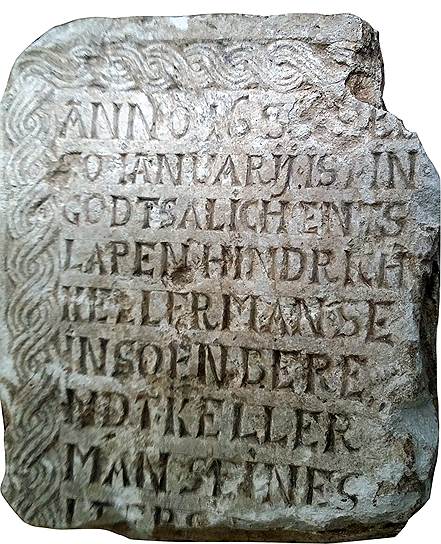 ANNO 163
20 IANUARY IS IN
GODT SALICH ENTS
LAPEN HINDRICH
KELLERMAN SE
IN SOEN BERE
NDT KELLER
MAN SEINES